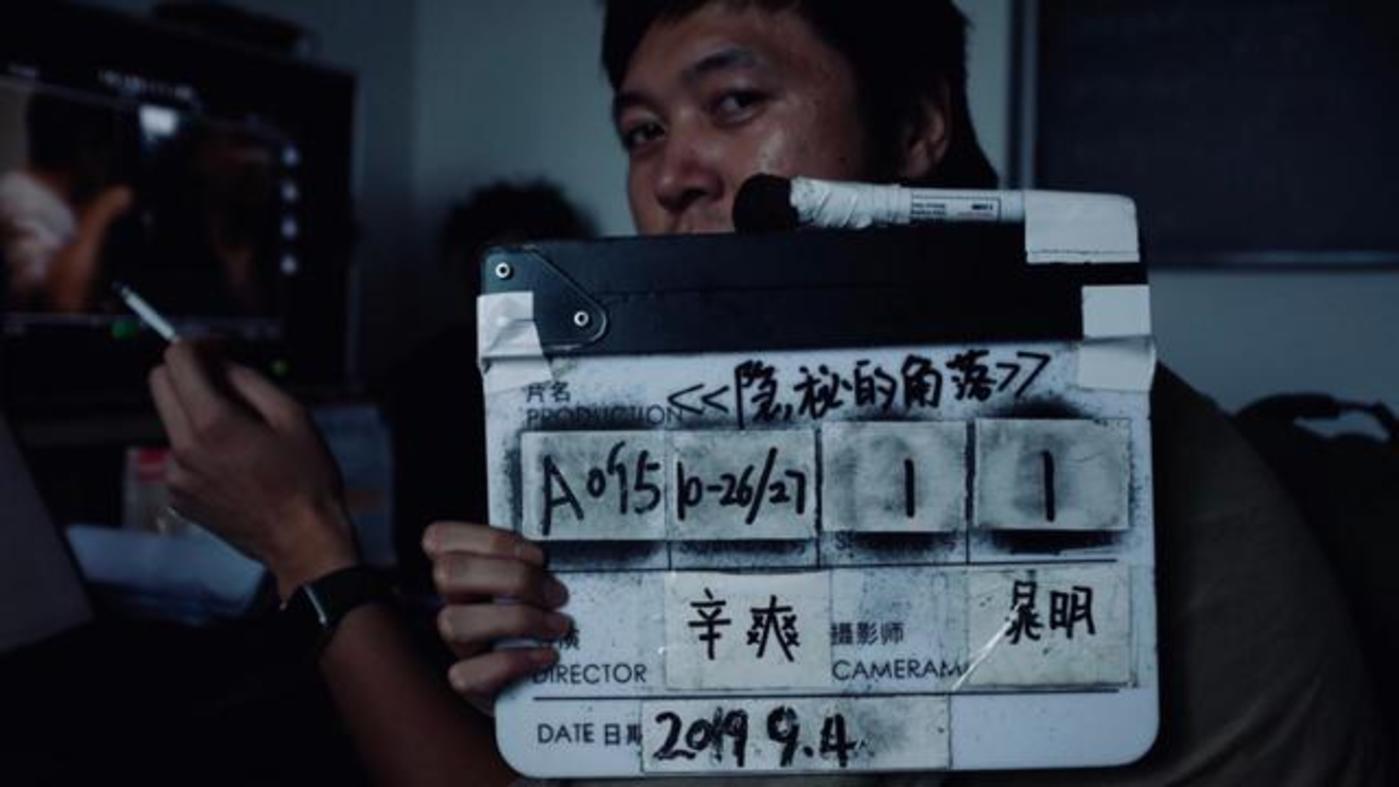 片名 <<隐秘的角落>>
PRODUCTION
A095 10-26/27 1 1
辛爽 攝影师 晁明
DIRECTOR CAMERAM
DATE 日期 2019 9.4